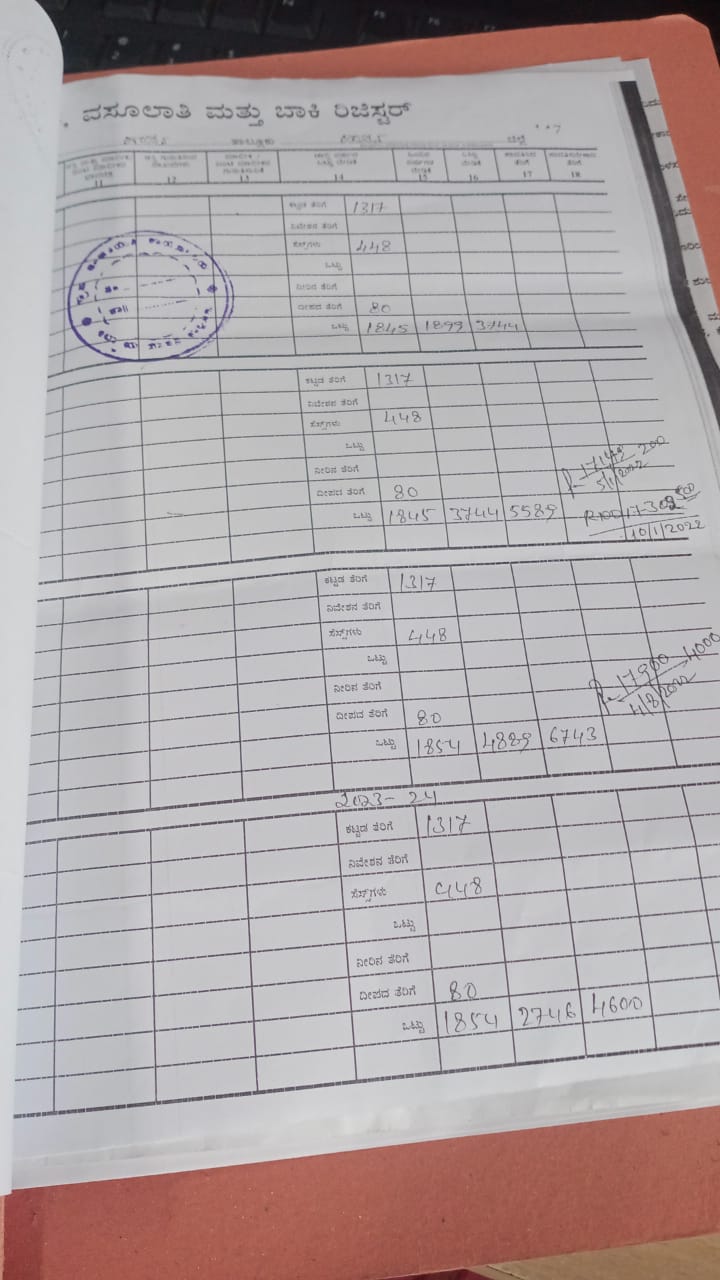 ವಸೂಲಾತಿ ಮತ್ತು ಬಾಕಿ ರಿಜಿಸ್ಟರ್
ತಾಲ್ಲೂಕು ಜಿಲ್ಲೆ
11 12 13 14 15 16 17 18
ಕಟ್ಟಡ ತೆರಿಗೆ 1317
ನಿವೇಶನ ತೆರಿಗೆ
ಸೆಸ್ಸ್‌ಗಳು 448
ಒಟ್ಟು
ನೀರಿನ ತೆರಿಗೆ
ದೀಪದ ತೆರಿಗೆ 80
ಒಟ್ಟು 1845 1899 3744
ಕಟ್ಟಡ ತೆರಿಗೆ 1317
ನಿವೇಶನ ತೆರಿಗೆ
ಸೆಸ್ಸ್‌ಗಳು 448
ಒಟ್ಟು
ನೀರಿನ ತೆರಿಗೆ
200
5/1/2022
ದೀಪದ ತೆರಿಗೆ 80
ಒಟ್ಟು 1845 3744 5589
10/1/2022
ಕಟ್ಟಡ ತೆರಿಗೆ 1317
ನಿವೇಶನ ತೆರಿಗೆ
ಸೆಸ್ಸ್‌ಗಳು 448
ಒಟ್ಟು
ನೀರಿನ ತೆರಿಗೆ
17900 4000
4/8/2022
ದೀಪದ ತೆರಿಗೆ 80
ಒಟ್ಟು 1854 4889 6743
2023-24
ಕಟ್ಟಡ ತೆರಿಗೆ 1317
ನಿವೇಶನ ತೆರಿಗೆ
ಸೆಸ್ಸ್‌ಗಳು 448
ಒಟ್ಟು
ನೀರಿನ ತೆರಿಗೆ
ದೀಪದ ತೆರಿಗೆ 80
ಒಟ್ಟು 1854 2746 4600